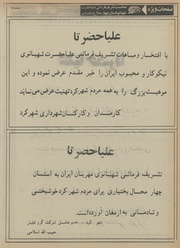 صفحات ویژه
علیا حضرتا
با افتخار و مباهات تشریف فرمائی علیاحضرت شهبانوی
نیکوکار و محبوب ایران را خیر مقدم عرض نموده و این
موهبت بزرگ را به همه مردم شهرکرد تهنیت عرض می‌نماید
کارمندان و کارکنان شهرداری شهرکرد
علیا حضرتا
تشریف فرمائی شهبانوی مهربان ایران به استان
چهار محال بختیاری برای مردم شهرکرد خوشبختی
و شادمانی به ارمغان آورده است.
حبیب الله اسلامی